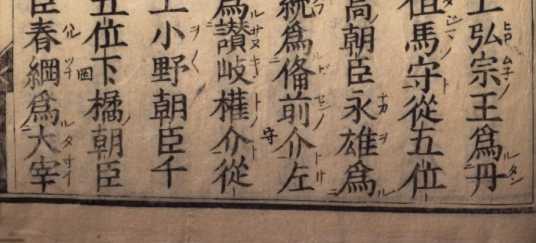 上弘宗王爲丹
但馬守從五位
高朝臣永雄爲
統爲備前介左
爲讃岐權介從
上小野朝臣千
五位下橘朝臣
臣春綱爲大宰